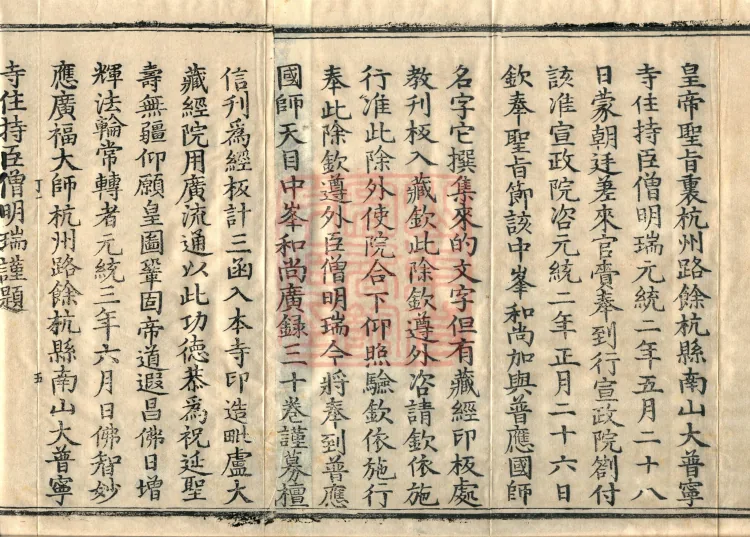 皇帝聖旨裏杭州路餘杭縣南山大普寧
寺住持臣僧明瑞元統二年五月二十八
日蒙朝廷差來官賫奉到行宣政院劄付
該准宣政院咨元統二年正月二十六日
欽奉聖旨節該中峯和尚加與普應國師
名字它撰集來的文字但有藏經印板處
教刊板入藏欽此除欽遵外咨請欽依施
行准此除外使院合下仰照驗欽依施行
奉此除欽遵外臣僧明瑞今將奉到普應
國師天目中峯和尚廣録三十卷謹募檀
信刊爲經板計三函入本寺印造毗盧大
藏經院用廣流通以此功德恭爲祝延聖
壽無疆仰願皇圖鞏固帝道遐昌佛日增
輝法輪常轉者元統三年六月日佛智妙
應廣福大師杭州路餘杭縣南山大普寧
寺住持臣僧明瑞謹題
五